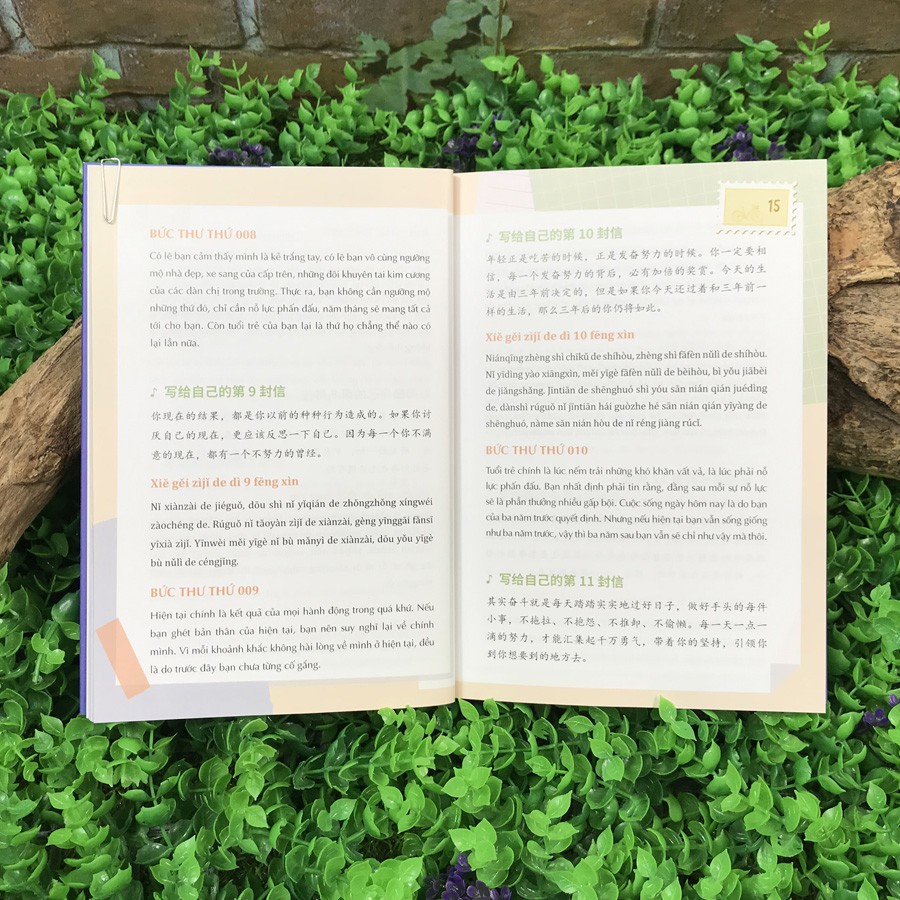 BỨC THƯ THỨ 008
Có lẽ bạn cảm thấy mình là kẻ trắng tay, có lẽ bạn vô cùng ngưỡng
mộ nhà đẹp, xe sang của cấp trên, những đôi khuyên tai kim cương
của các đàn chị trong trường. Thực ra, bạn không cần ngưỡng mộ
những thứ đó, chỉ cần nỗ lực phấn đấu, năm tháng sẽ mang tất cả
tới cho bạn. Còn tuổi trẻ của bạn lại là thứ họ chẳng thể nào có
lại lần nữa.
♪ 写给自己的第 9 封信
你现在的结果，都是你以前的种种行为造成的。如果你讨
厌自己的现在，更应该反思一下自己。因为每一个你不满
意的现在，都有一个不努力的曾经。
Xiě gěi zìjǐ de dì 9 fēng xìn
Nǐ xiànzài de jiéguǒ, dōu shì nǐ yǐqián de zhǒngzhǒng xíngwéi
zàochéng de. Rúguǒ nǐ tǎoyàn zìjǐ de xiànzài, gèng yīnggāi fǎnsī
yīxià zìjǐ. Yīnwèi měi yīgè nǐ bù mǎnyì de xiànzài, dōu yǒu yīgè
bù nǔlì de céngjīng.
BỨC THƯ THỨ 009
Hiện tại chính là kết quả của mọi hành động trong quá khứ. Nếu
bạn ghét bản thân của hiện tại, bạn nên suy nghĩ lại về chính
mình. Vì mỗi khoảnh khắc không hài lòng về mình ở hiện tại, đều
là do trước đây bạn chưa từng cố gắng.
15
♪ 写给自己的第 10 封信
年轻正是吃苦的时候，正是发奋努力的时候。你一定要相
信，每一个发奋努力的背后，必有加倍的奖赏。今天的生
活是由三年前决定的，但是如果你今天还过着和三年前一
样的生活，那么三年后的你仍将如此。
Xiě gěi zìjǐ de dì 10 fēng xìn
Niánqīng zhèng shì chīkǔ de shíhòu, zhèng shì fāfèn nǔlì de shíhòu.
Nǐ yīdìng yào xiāngxìn, měi yīgè fāfèn nǔlì de bèihòu, bì yǒu jiābèi
de jiǎngshǎng. Jīntiān de shēnghuó shì yóu sān nián qián juédìng
de, dànshì rúguǒ nǐ jīntiān hái guòzhe hé sān nián qián yīyàng de
shēnghuó, nàme sān nián hòu de nǐ réng jiāng rúcǐ.
BỨC THƯ THỨ 010
Tuổi trẻ chính là lúc nếm trải những khó khăn vất vả, là lúc phải nỗ
lực phấn đấu. Bạn nhất định phải tin rằng, đằng sau mỗi sự nỗ lực
sẽ là phần thưởng nhiều gấp bội. Cuộc sống ngày hôm nay là do bạn
của ba năm trước quyết định. Nhưng nếu hiện tại bạn vẫn sống giống
như ba năm trước, vậy thì ba năm sau bạn vẫn sẽ chỉ như vậy mà thôi.
♪ 写给自己的第 11 封信
其实奋斗就是每天踏踏实实地过好日子，做好手头的每件
小事，不拖拉、不抱怨、不推卸、不偷懒。每一天一点一
滴的努力，才能汇集起千万勇气，带着你的坚持，引领你
到你想要到的地方去。